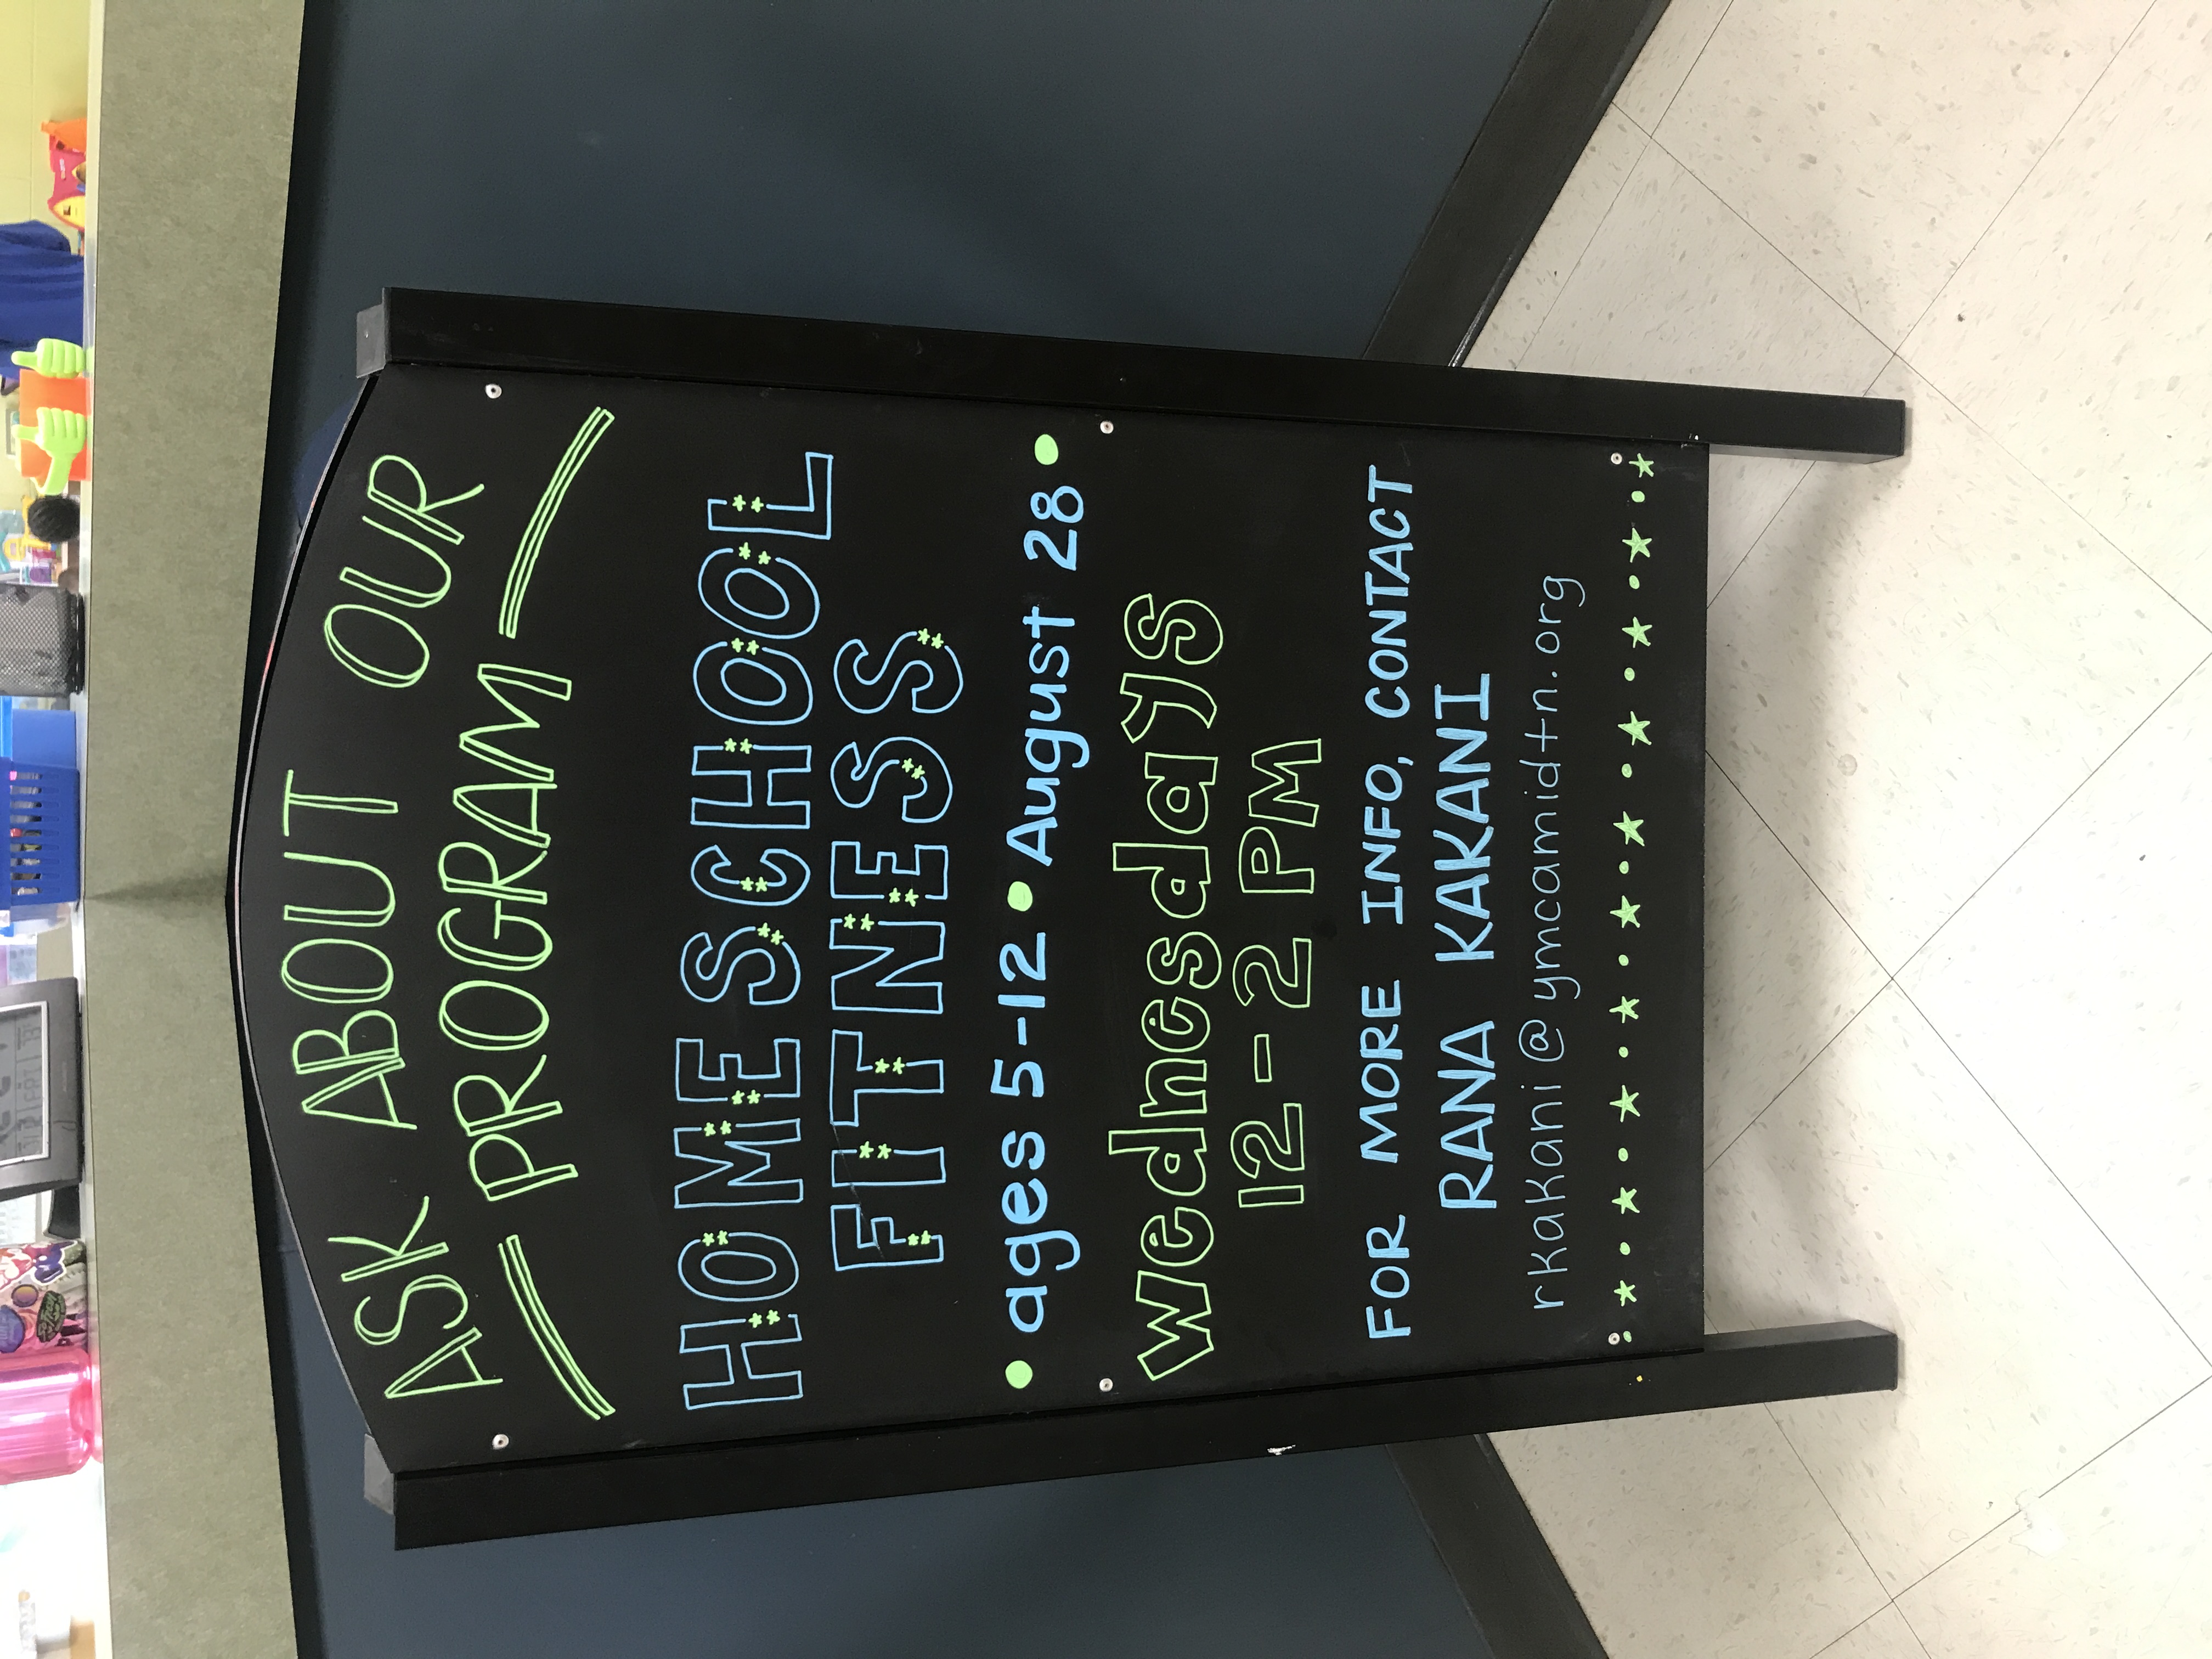 ASK ABOUT OUR
PROGRAM
HOMESCHOOL
FITNESS
• ages 5-12 • August 28 •
Wednesdays
12-2 PM
FOR MORE INFO, CONTACT
RANA KAKANI
rkakani@ymcamidtn.org